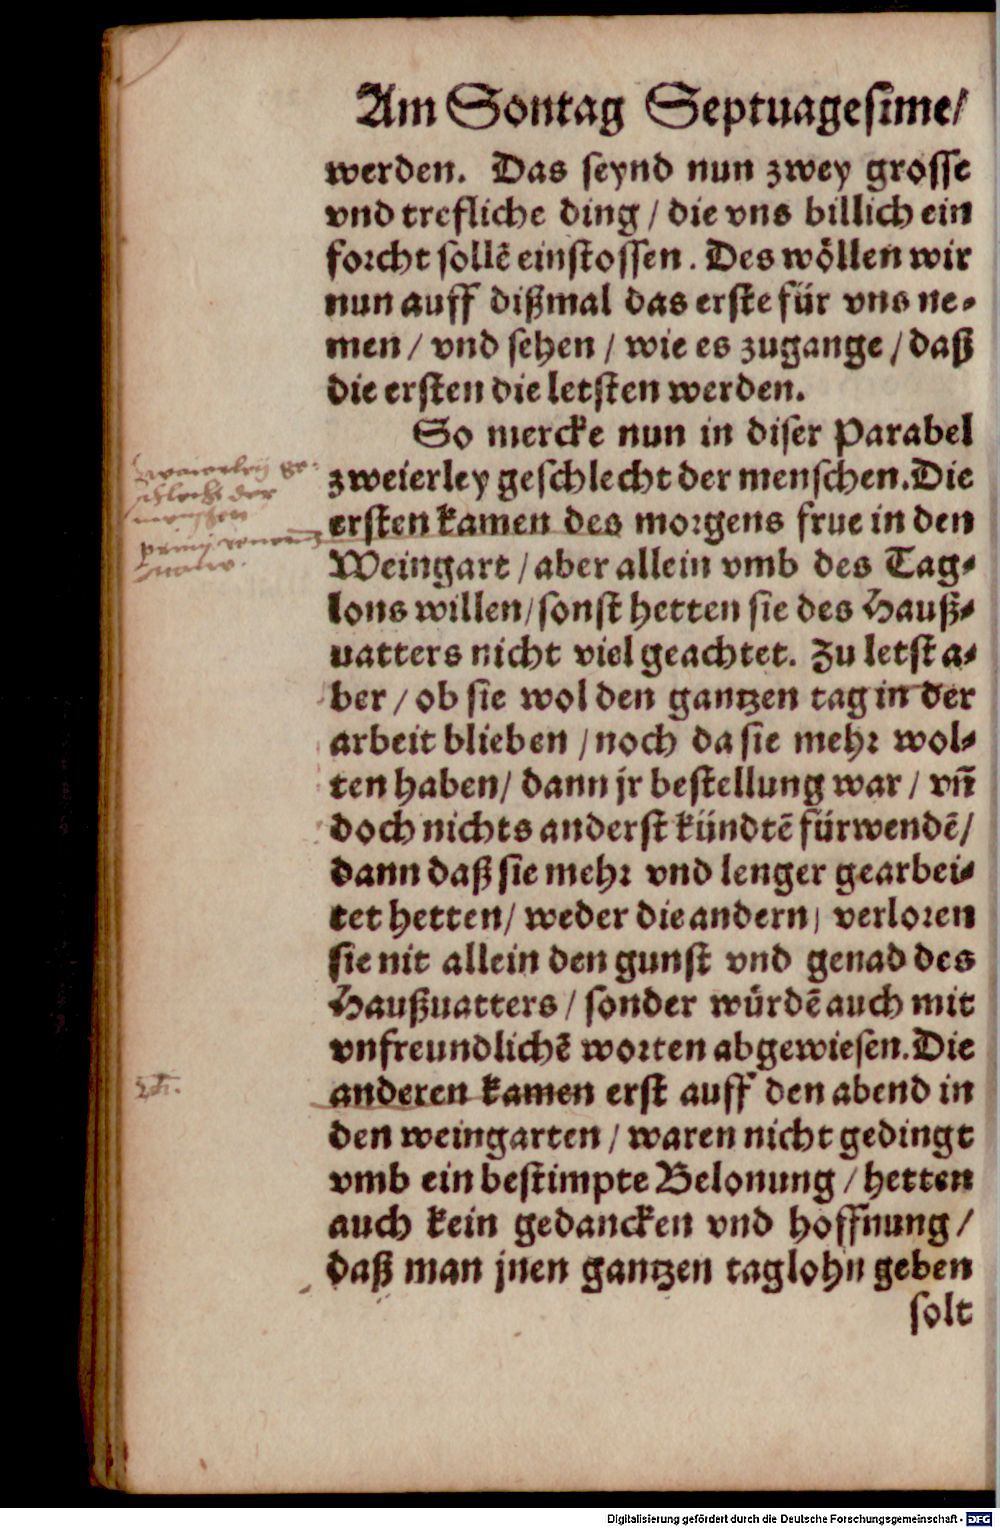 Am Sontag Septuagesime/
werden. Das seynd nun zwey grosse
vnd trefliche ding / die vns billich ein
forcht sollẽ einstossen. Des wöllen wir
nun auff dißmal das erste für vns ne-
men / vnd sehen / wie es zugange / daß
die ersten die letsten werden.
So mercke nun in diser Parabel
zweierley geschlecht der menschen. Die
ersten kamen des morgens frue in den
Weingart / aber allein vmb des Tag-
lons willen / sonst hetten sie des Hauß-
uatters nicht viel geachtet. Zu letst a-
ber / ob sie wol den gantzen tag in der
arbeit blieben / noch da sie mehr wol-
ten haben / dann jr bestellung war / vñ
doch nichts anderst kündtẽ fürwendẽ/
dann daß sie mehr vnd lenger gearbei-
tet hetten / weder die andern / verloren
sie nit allein den gunst vnd genad des
Haußuatters / sonder würdẽ auch mit
vnfreundlichẽ worten abgewiesen. Die
anderen kamen erst auff den abend in
den weingarten / waren nicht gedingt
vmb ein bestimpte Belonung / hetten
auch kein gedancken vnd hoffnung /
daß man jnen gantzen taglohn geben
solt
zwaierley ge-
schlecht der
menschen
Digitalisierung gefördert durch die Deutsche Forschungsgemeinschaft - DFG